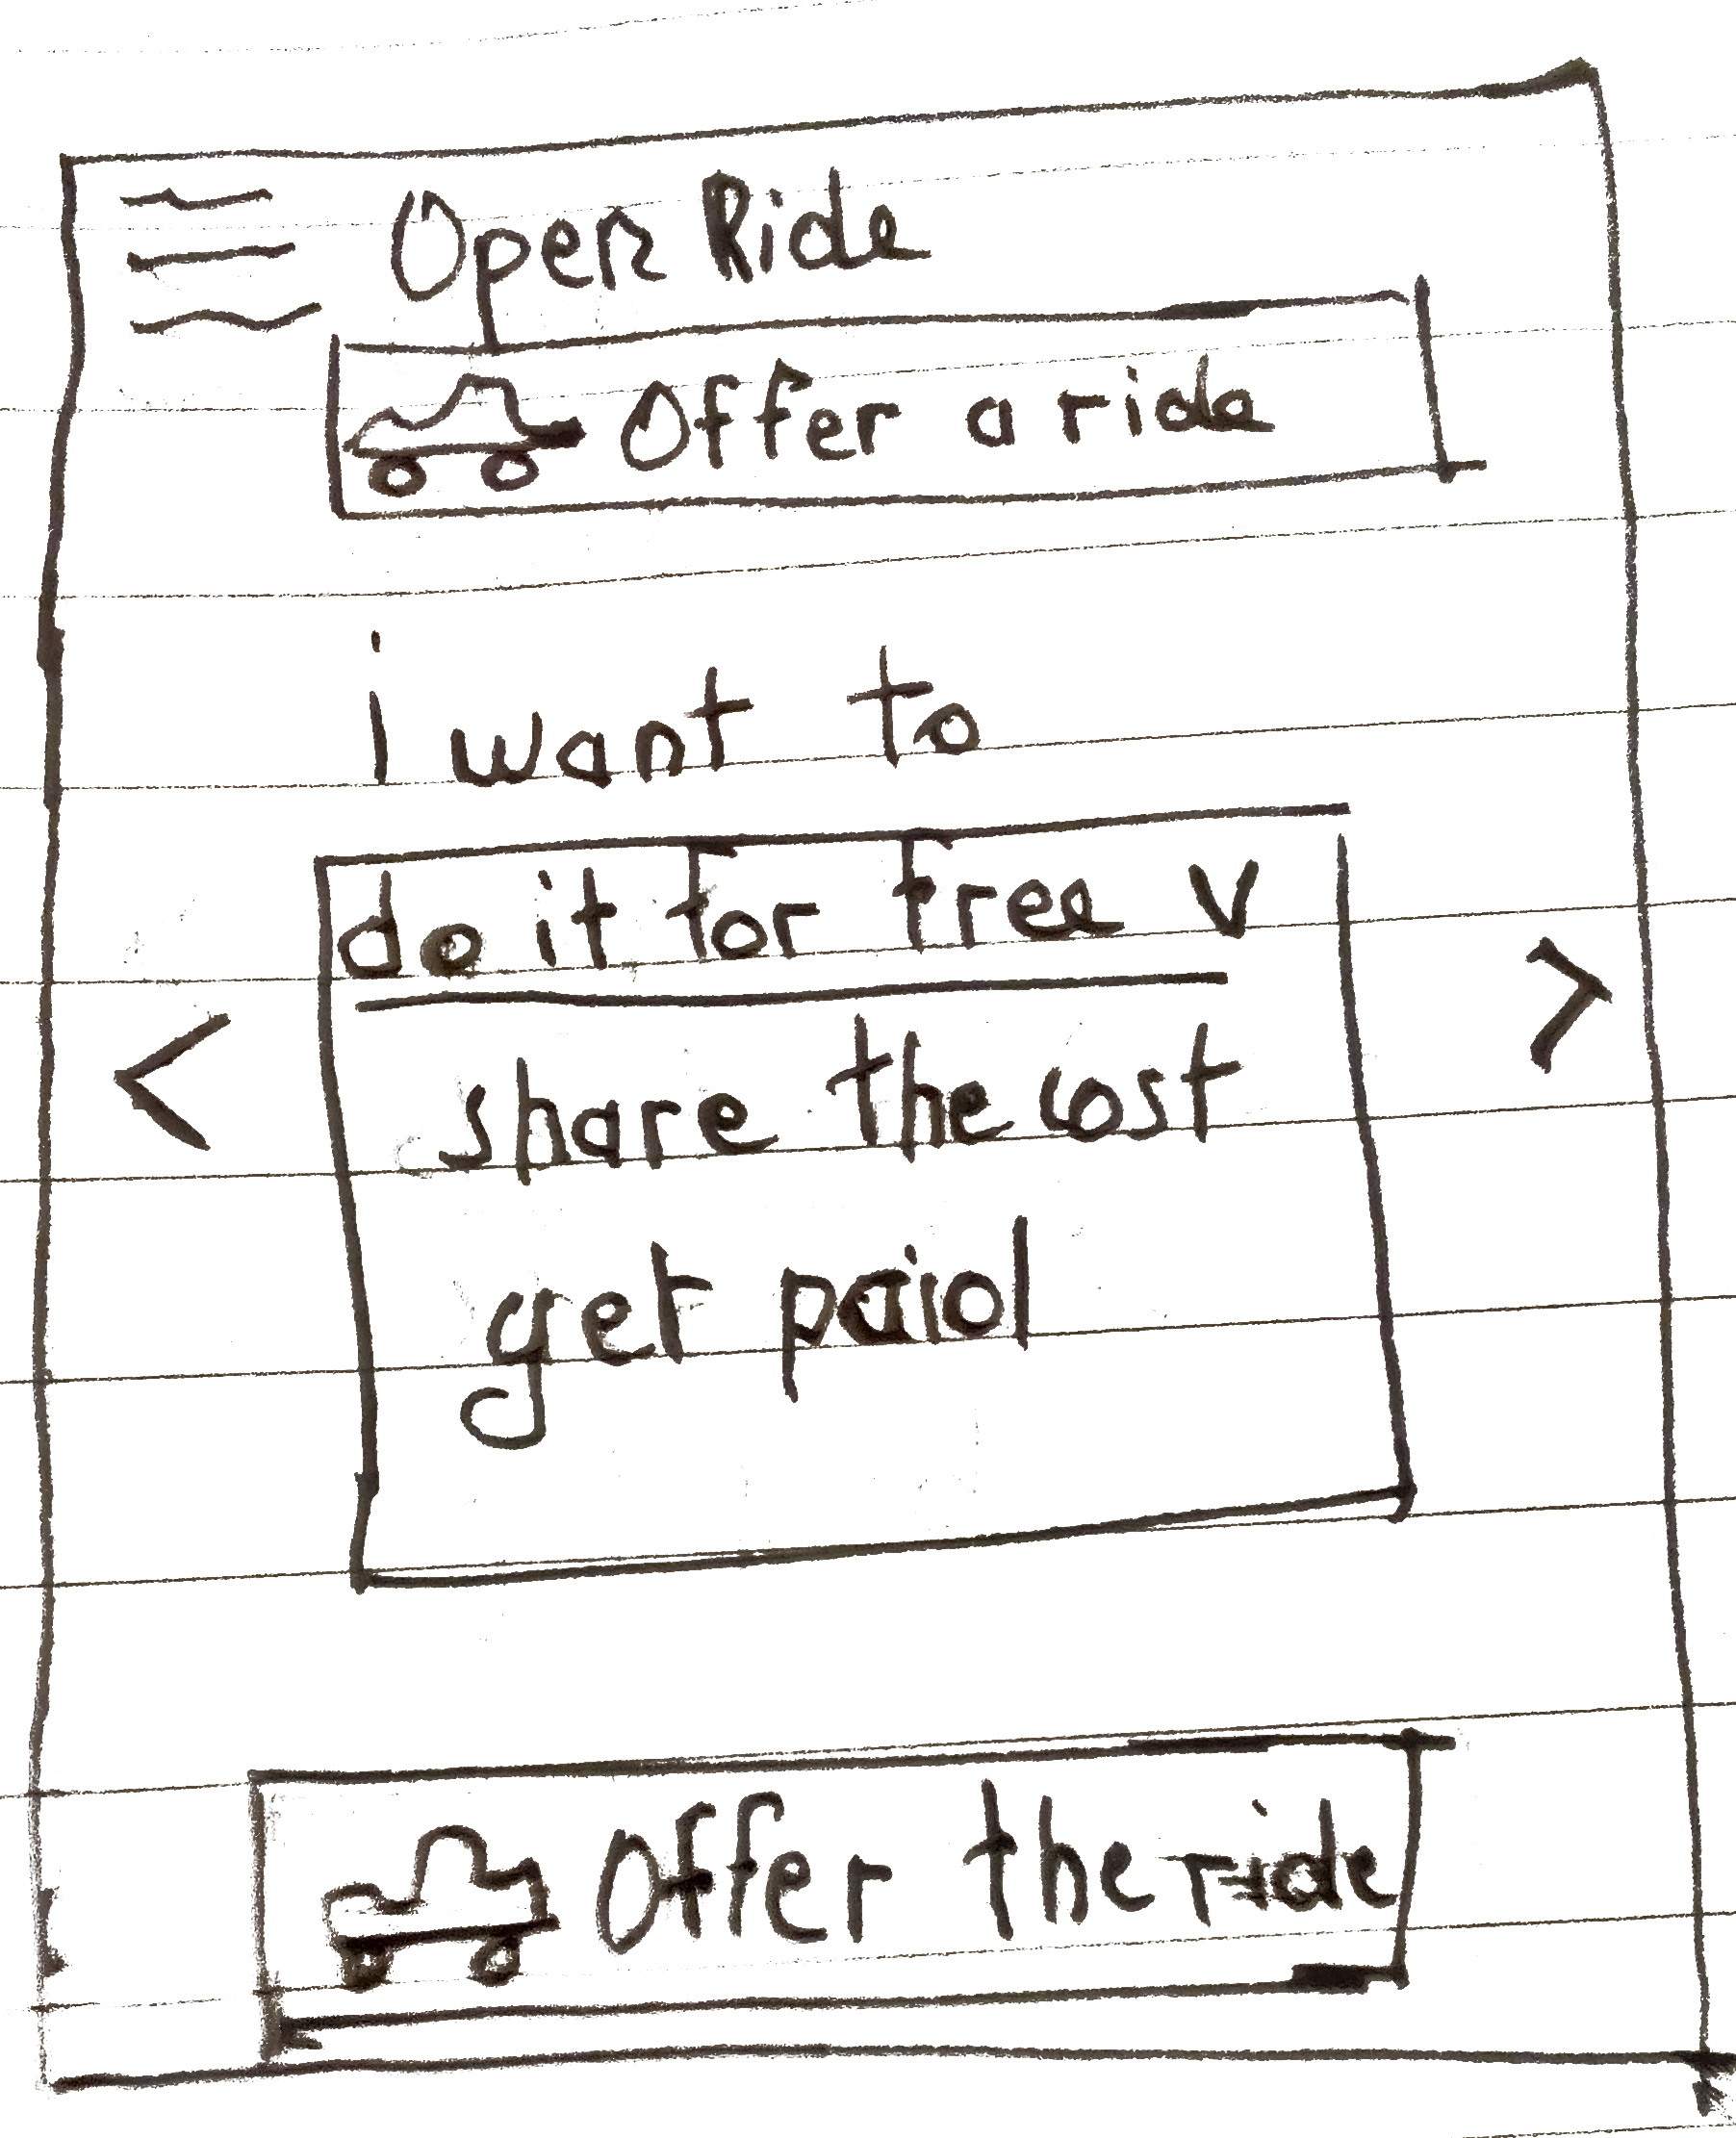 Open Ride
Offer a ride
i want to
do it for free v
share the cost
get paid
< >
Offer the ride